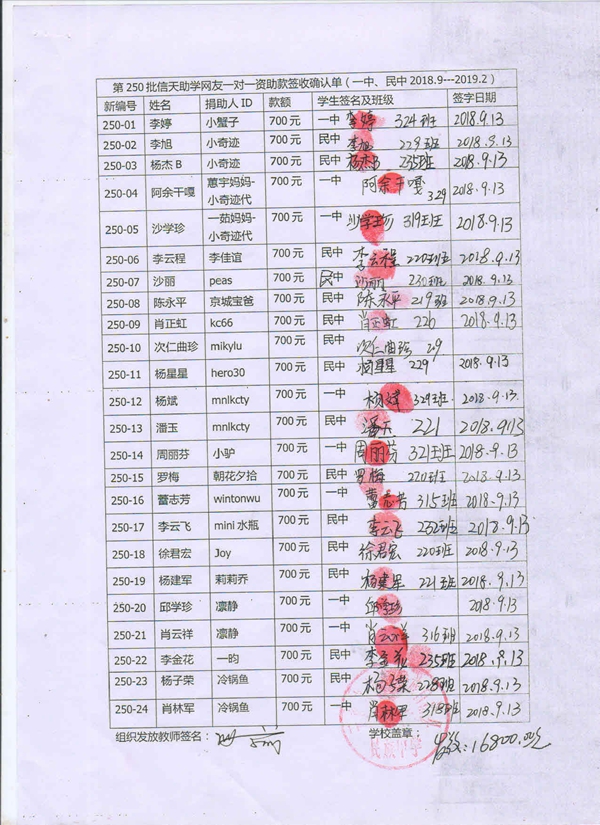 第 250 批信天助学网友一对一资助款签收确认单（一中、民中 2018.9---2019.2）
新编号 姓名 捐助人 ID 款额 学生签名及班级 签字日期
250-01 李婷 小蟹子 700 元 一中 李婷 324班 2018.9.13
250-02 李旭 小奇迹 700 元 民中 李旭 229班 2018.9.13
250-03 杨杰 B 小奇迹 700 元 一中 杨杰B 235班 2018.9.13
250-04 阿余干嘎 蕙宇妈妈-小奇迹代 700 元 一中 阿余干嘎 329 2018.9.13
250-05 沙学珍 一茹妈妈-小奇迹代 700 元 一中 沙学珍 319班 2018.9.13
250-06 李云程 李佳谊 700 元 民中 李云程 220班 2018.9.13
250-07 沙丽 peas 700 元 民中 沙丽 230班 2018.9.13
250-08 陈永平 京城宝爸 700 元 民中 陈永平 219班 2018.9.13
250-09 肖正虹 kc66 700 元 民中 肖正虹 226 2018.9.13
250-10 次仁曲珍 mikylu 700 元 民中 次仁曲珍
250-11 杨星星 hero30 700 元 民中 杨星星 229 2018.9.13
250-12 杨斌 mnlkcty 700 元 一中 杨斌 329班 2018.9.13
250-13 潘玉 mnlkcty 700 元 民中 潘玉 221 2018.9.13
250-14 周丽芬 小驴 700 元 一中 周丽芬 321班 2018.9.13
250-15 罗梅 朝花夕拾 700 元 民中 罗梅 220班 2018.9.13
250-16 蘁志芳 wintonwu 700 元 一中 315班 2018.9.13
250-17 李云飞 mini 水瓶 700 元 民中 李云飞 232班 2018.9.13
250-18 徐君宏 Joy 700 元 民中 徐君宏 220班 2018.9.13
250-19 杨建军 莉莉乔 700 元 民中 杨建军 221班 2018.9.13
250-20 邱学珍 凛静 700 元 一中 邱学珍 2018.9.13
250-21 肖云祥 凛静 700 元 一中 肖云祥 316班 2018.9.13
250-22 李金花 一昀 700 元 民中 李金花 235班 2018.9.13
250-23 杨子荣 冷锅鱼 700 元 民中 杨子荣 228班 2018.9.13
250-24 肖林军 冷锅鱼 700 元 一中 肖林军 318班 2018.9.13
组织发放教师签名： 学校盖章： 16800.00元
民族中学